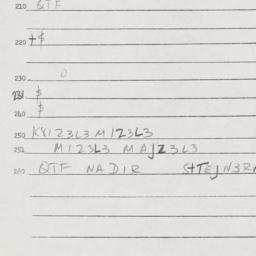 210 QTF
220 +$
230 0
231 $
240 $
250 KY123L3 M123L3
252 M123L3 MAJZ3L3
260 QTF NADIR